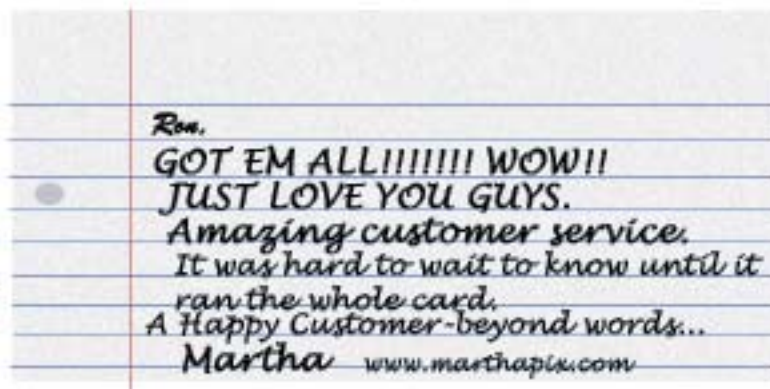 Ron,
GOT EM ALL!!!!!!! WOW!!
JUST LOVE YOU GUYS.
Amazing customer service.
It was hard to wait to know until it
ran the whole card.
A Happy Customer-beyond words...
Martha www.marthapix.com